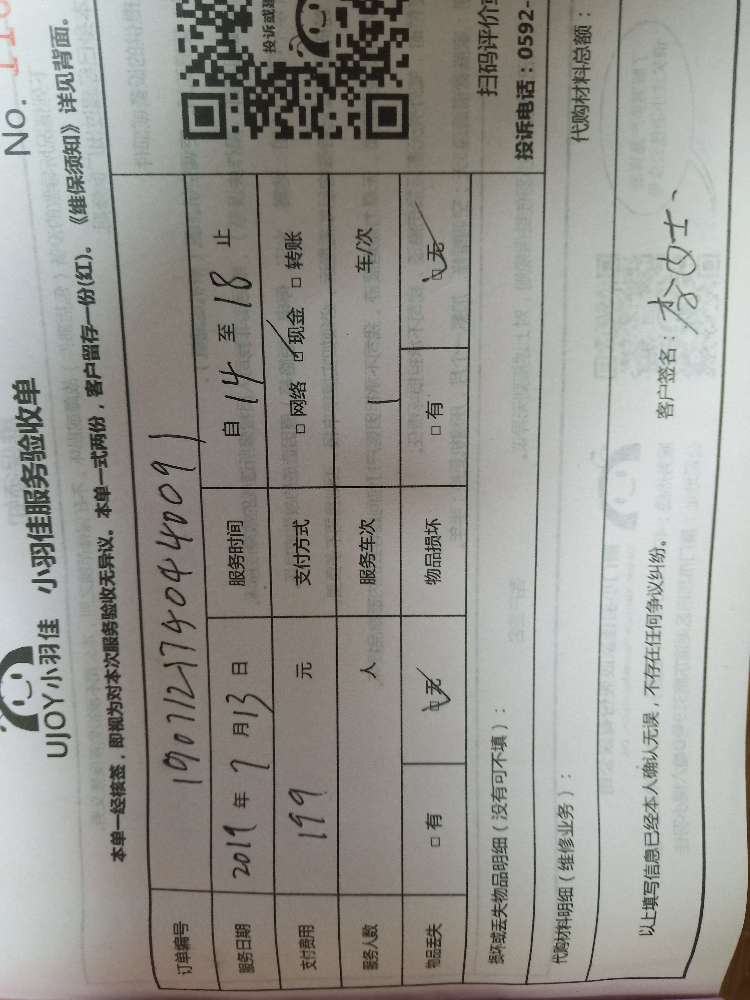 No.
UJOY小羽佳 小羽佳服务验收单
本单一经核签，即视为对本次服务验收无异议。本单一式两份，客户留存一份(红)。《维保须知》详见背面。
订单编号 1907121740440091
服务日期 2019 年 7 月 13 日 服务时间 自 14 至 18 止
支付费用 199 元 支付方式 □ 网络 ☑ 现金 □ 转账
服务人数 人 服务车次 1 车/次
物品丢失 □ 有 ☑ 无 物品损坏 □ 有 ☑ 无
投诉或
扫码评价
损坏或丢失物品明细（没有可不填）：
投诉电话：0592-
代购材料明细（维修业务）：
代购材料总额：
以上填写信息已经本人确认无误，不存在任何争议纠纷。
客户签名：李女士